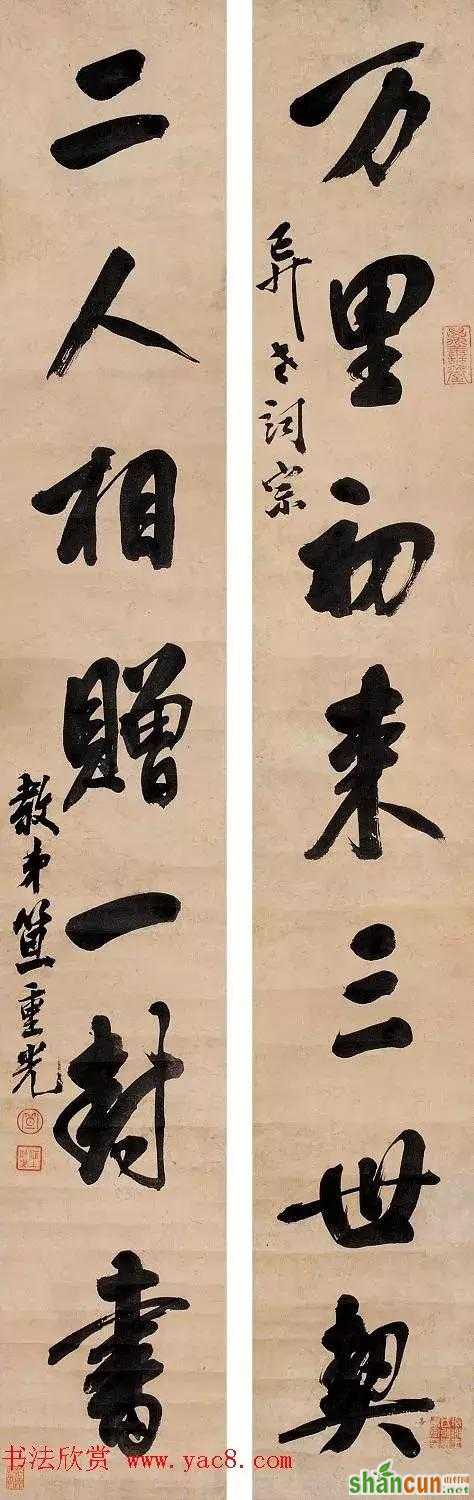 万里初来三世契
异老詞宗
二人相贈一封書
教弟笪重光
书法欣赏 www.yac8.com
山村
shancun
.net